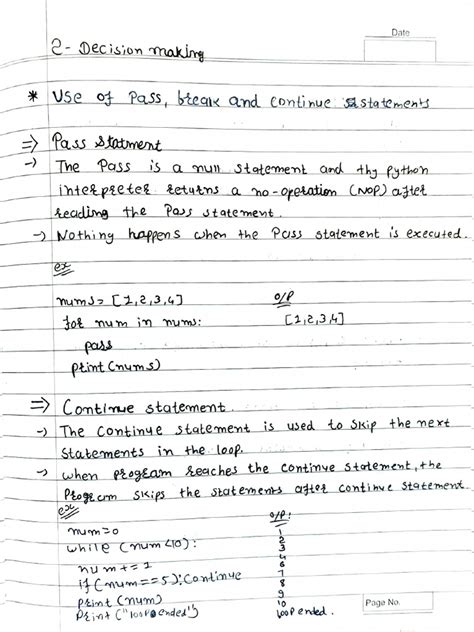 Date
2- Decision making
* Use of Pass, break and continue statements
=> Pass statment
-) The Pass is a null statement and thy Python
interpreter returns a no-operation (NOP) after
reading the Pass statement.
-) Nothing happens when the Pass statement is executed.
ex
nums= [1,2,3,4] O/P
for num in nums: [1,2,3,4]
pass
print(nums)
=> Continue statement.
-) The continue statement is used to skip the next
statements in the loop.
-) when program reaches the continue statement, the
Program skips the statements after continue statement.
ex O/P:
num=0 1
while (num<10): 2
3
num += 1 4
6
7
if(num==5):Continue 8
print(num) 9
10
print("loop ended") loop ended.
Page No.